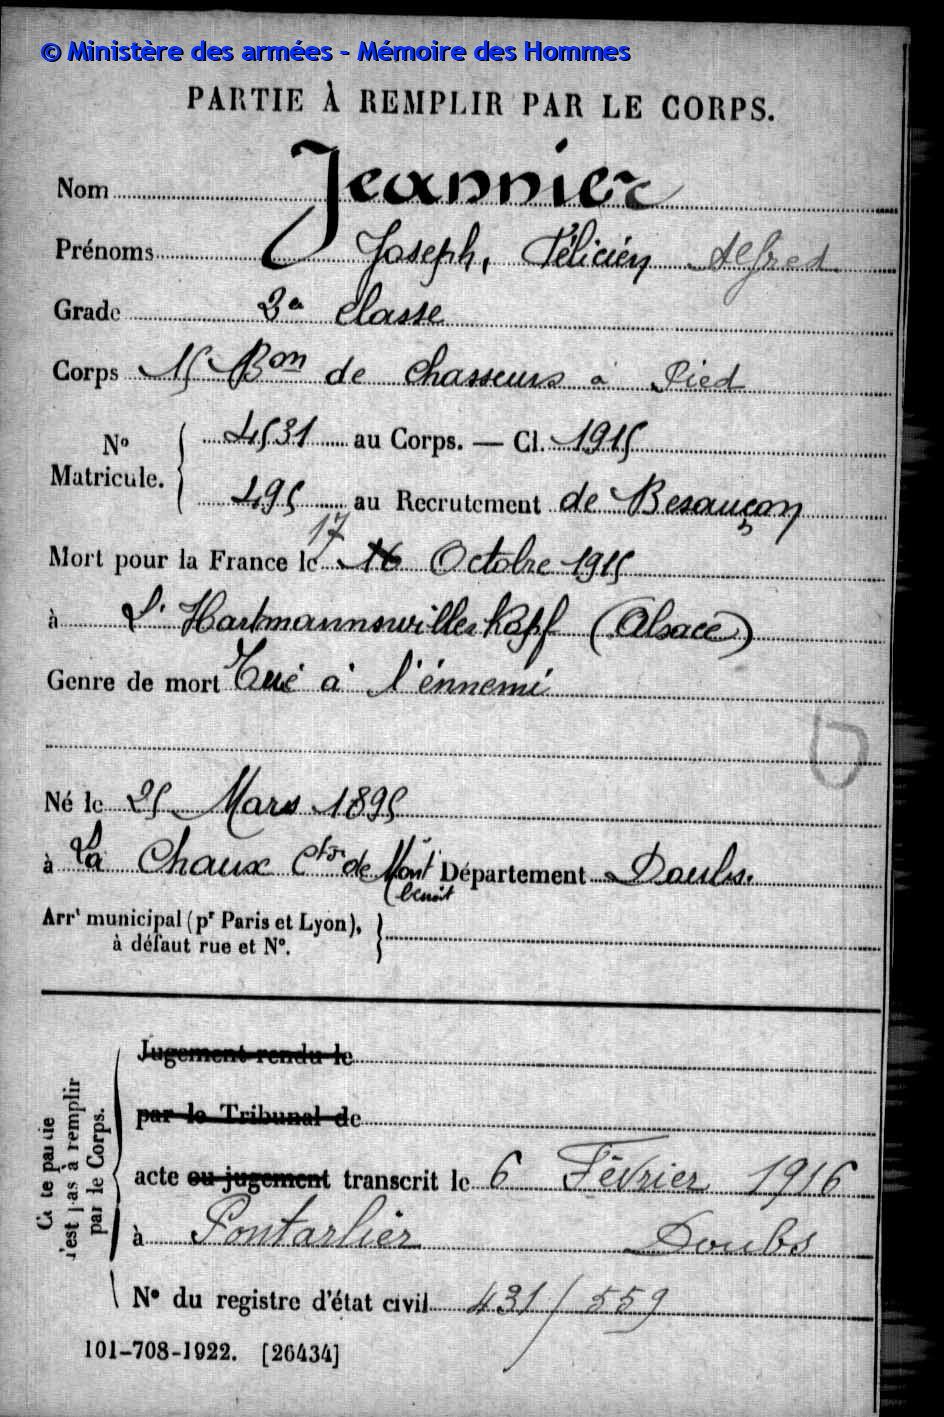 © Ministère des armées - Mémoire des Hommes
PARTIE À REMPLIR PAR LE CORPS.
Nom Jeannier
Prénoms Joseph, Félicien Alfred
Grade 2e classe
Corps 15 Bon de Chasseurs à Pied
No Matricule. 4531 au Corps. — Cl. 1915
495 au Recrutement de Besançon
17
Mort pour la France le 16 Octobre 1915
à L'Hartmannswillerkopf (Alsace)
Genre de mort Tué à l'énnemi
Né le 25 Mars 1895
à La Chaux Cton de Mont Département Doubs.
benoit
Arrt municipal (pr Paris et Lyon),
à défaut rue et No.
Jugement rendu le
par le Tribunal de
acte ou jugement transcrit le 6 Février 1916
à Pontarlier Doubs
No du registre d'état civil 431/559
Cette partie
n'est pas à remplir
par le Corps.
101-708-1922. [26434]